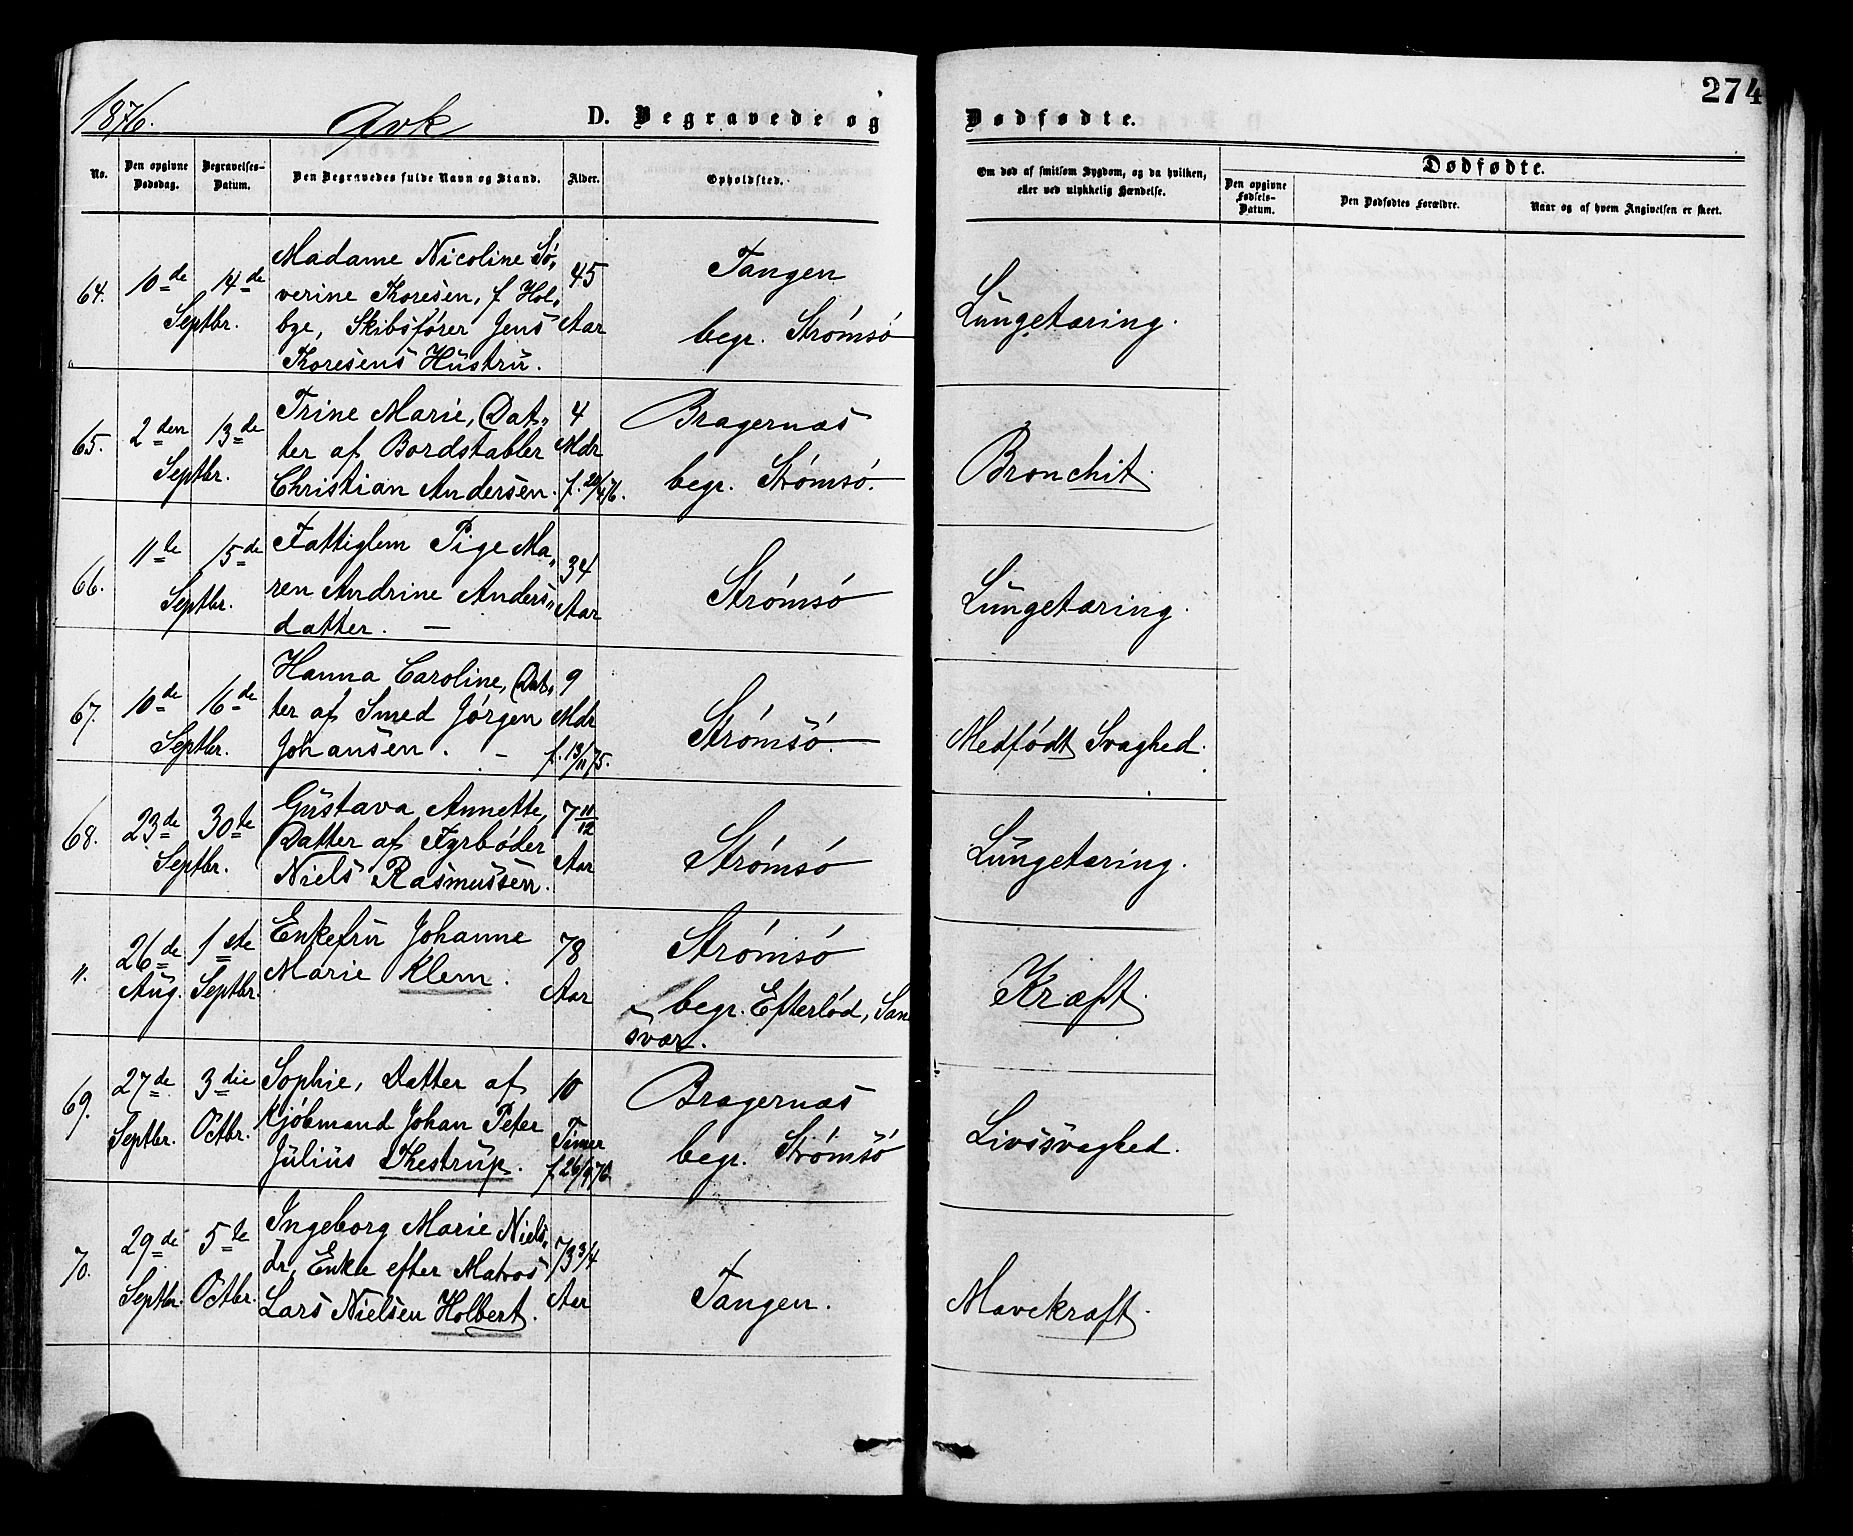 274
1876. Qvk D. Begravede og Dødfødte.
No. Den opgivne Dødsdag. Begravelses-Datum. Den Begravedes fulde Navn og Stand. Alder. Opholdsted. Om død af smitsom Sygdom, og da hvilken, eller ved ulykkelig Hændelse. Dødfødte.
Den opgivne Fødsels-Datum. Den Dødfødtes Forældre. Naar og af hvem Angivelsen er skeet.
64. 10de 14de Septbr.
Madame Nicoline Sø„
verine Thoresen, f Hol„
bye, Skibsfører Jens
Thoresens Hustru.
45
Aar
Tangen
begr. Strømsø
Lungetæring.
65. 2den 13de Septbr.
Trine Marie, Dat„
ter af Bordstabler
Christian Andersen.
4
Mdr
Bragernæs
begr. Strømsø.
Bronchit.
66. 11te 15de Septbr.
Fattiglem Pige Ma„
ren Andrine Anders„
datter. —
34
Aar
Strømsø
Lungetæring.
67. 10de 16de Septbr.
Hanna Caroline, Dat„
ter af Smed Jørgen
Johansen. —
9
Mdr
f. 13/11 75.
Strømsø.
Medfødt Svaghed.
68. 23de 30te Septbr.
Gustava Annette,
Datter af Fyrbøder
Niels Rasmussen.
7 11/12
Aar
Strømsø
Lungetæring.
„. 26de Aug. 1ste Septbr.
Enkefru Johanne
Marie Klem.
78
Aar
Strømsø
begr. Efterlød, San
svær.
Kræft.
69. 27de Septbr. 3die Octbr.
Sophie, Datter af
Kjøbmand Johan Peter
Julius Thestrup.
10
Timer
f. 26/9 76.
Bragernæs
begr. Strømsø
Livssvaghed.
70. 29de Septbr. 5te Octbr.
Ingeborg Marie Niels„
dr, Enke efter Matros
Lars Nielsen Holbert.
73 3/4
Aar
Tangen.
Mavekræft.